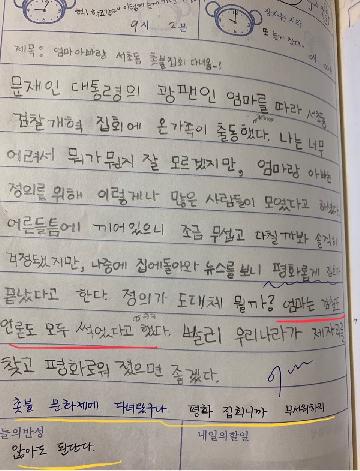 9시 2분
제목: 엄마아빠랑 서초동 촛불집회 다녀옴~!
문재인 대통령의 광팬인 엄마를 따라 서초동
검찰개혁 집회에 온가족이 출동했다. 나는 너무
어려서 뭐가뭔지 잘 모르겠지만, 엄마랑 아빠는
정의를 위해 이렇게나 많은 사람들이 모였다고 하셨다.
어른들틈에 끼어있으니 조금 무섭고 다칠까봐 솔직히
걱정됐지만, 나중에 집에돌아와 뉴스를 보니 평화롭게
끝났다고 한다. 정의가 도대체 뭘까? 엄마는 검찰도
언론도 모두 썩었다고 했다. 빨리 우리나라가 제자리를
찾고 평화로워 졌으면 좋겠다.
촛불 문화제에 다녀왔구나 평화 집회니까 무서워하지
늘의반성 않아도 된단다.
내일의할일